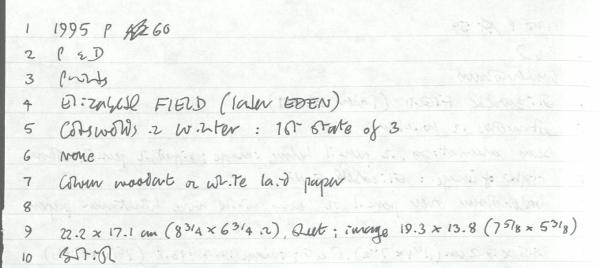 1 1995 P 60
2 P & D
3 Prints
4 Elizabeth FIELD (later EDEN)
5 Cotswolds in winter : 1st state of 3
6 none
7 Colour woodcut on white laid paper
8
9 22.2 x 17.1 cm (8 3/4 x 6 3/4 in), sheet ; image 19.3 x 13.8 (7 5/8 x 5 3/8)
10 British